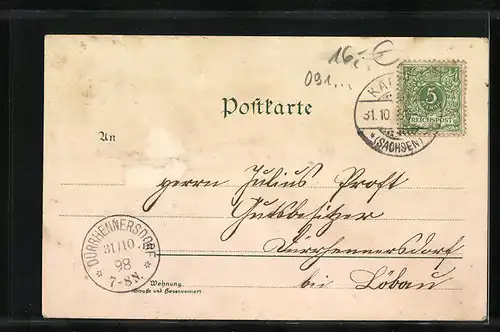 16,- €
091...
Postkarte
5
REICHSPOST
31.10.
(SACHSEN)
An
Herrn Julius Proft
Gutsbesitzer
Dürrhennersdorf
bei Löbau
DÜRRHENNERSDORF
31/10
98
7-8N.
Wohnung
(Straße und Hausnummer)